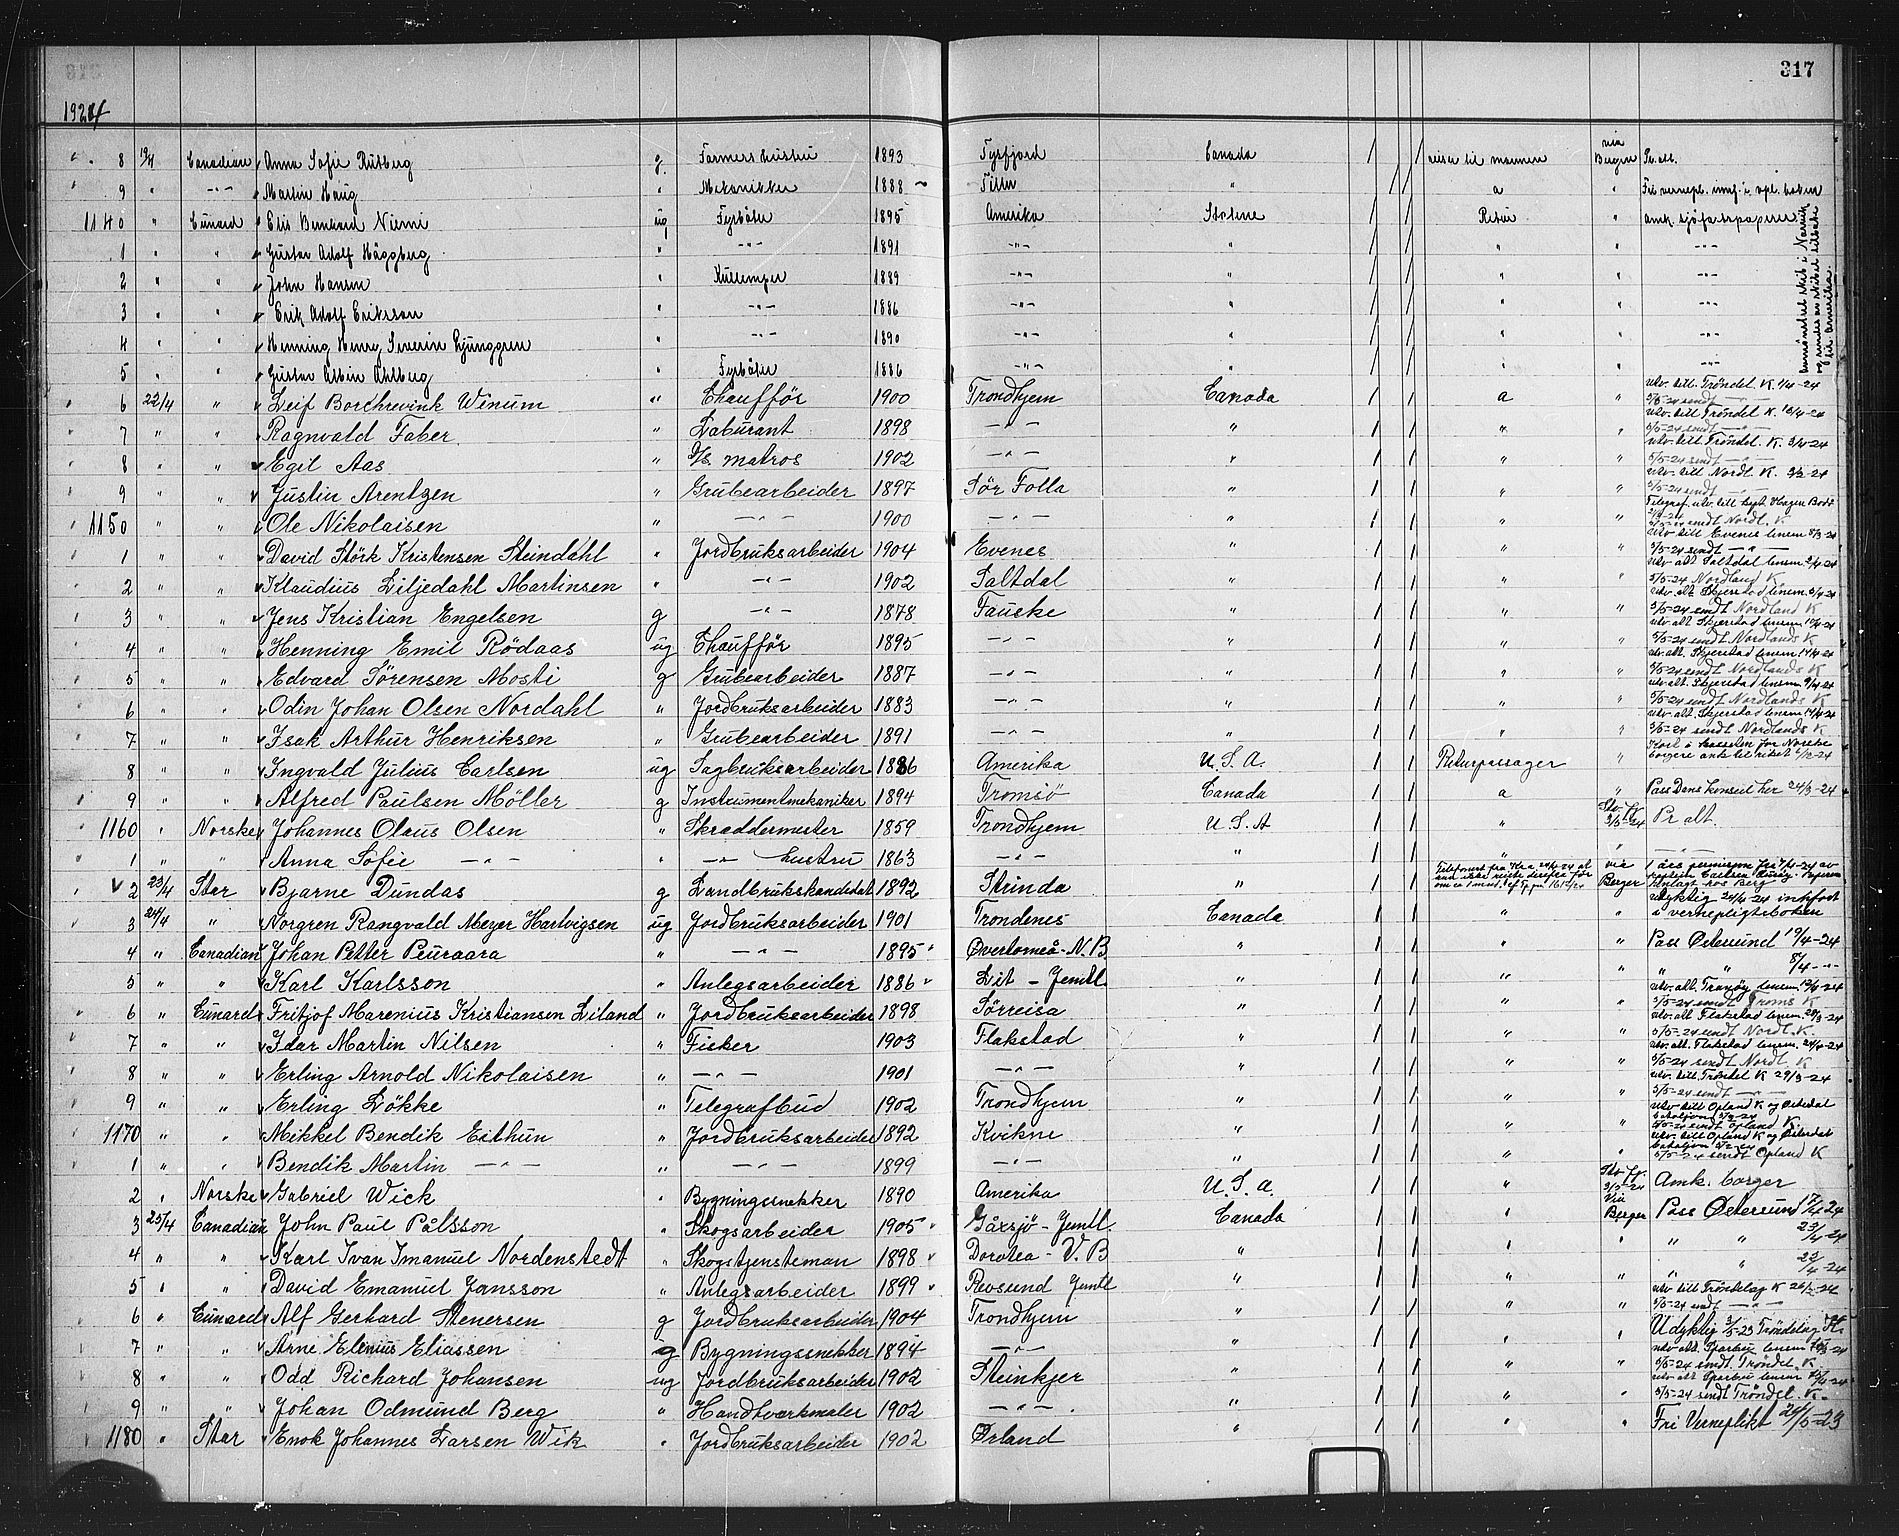 317
1924
8 19/4 Canadian Anna Sofie Rutberg g. Farmers hustru 1893 Tysfjord Canada reise til mannen via Bergen Pr. alt.
9 " -"- Martin Haug " Mekanikker 1888 " a " Fri vernepl.
1140 " Cunard Elis Bernhard Niemi ug Fyrbøter 1895 Amerika Statene Retur " amk. sjøfartspapirer
1 " " Gustav Adolf Häggberg " -"- 1891 -"- " " " -"-
2 " " John Hansen " Kullemper 1889 -"- " " " -"-
3 " " Erik Adolf Eriksson " -"- 1886 -"- " " " -"-
4 " " Henning Henry Severin Ljunggren " -"- 1890 -"- " " " -"-
5 " " Gustav Albin Ahlberg " Fyrbøter 1886 -"- " " " -"-
6 22/4 " Leif Borchrevink Winum " Chaufför 1900 Trondhjem Canada a " utv. till. Tröndel. K. 1/4-24
7 " " Ragnvald Faber " Laburant 1898 -"- " " " 5/5-24 sendt -"- utv. till Tröndel K. 16/4-24
8 " " Egil Aas " D/s. matros 1902 -"- " " " 5/5-24 sendt -"- utv. till Tröndel. K. 3/4-24
9 " " Justin Arentzen " Grubearbeider 1897 Sör Folla " " " 5/5-24 sendt -"- utv. till Nordl. K. 3/3-24
1150 " " Ole Nikolaisen " -"- 1900 -"- " " " sendt Nordl. K
1 " " David Störk Kristensen Steindahl " Jordbruksarbeider 1904 Evenes " " " utv till Evenes lensm 8/3-24
2 " " Klaudius Liljedahl Martinsen " -"- 1902 Saltdal " " " 5/5-24 sendt -"- utv alt. Saltdal lensm 2/4-24
3 " " Jens Kristian Engelsen g -"- 1878 Fauske " " " 5/5-24 Nordland K utv. alt. Skjerstad lensm. 3/4-24
4 " " Henning Emil Rödaas ug Chaufför 1895 -"- " " " 5/5-24 sendt Nordland K utv alt. Skjerstad lensm
5 " " Edvard Sörensen Mosti g Grubearbeider 1887 -"- " " " 5/5-24 sendt Nordlands K utv. alt. Skjerstad lensm 14/4-24
6 " " Odin Johan Olsen Nordahl " Jordbruksarbeider 1883 -"- " " " 5/5-24 sendt Nordlands K utv alt. Skjerstad lensm 9/4-24
7 " " Isak Arthur Henriksen " Grubearbeider 1891 -"- " " " 5/5-24 sendt Nordlands K utv. alt. Skjerstad lensm 14/4-24
8 " " Ingvald Julius Carlsen ug Sagbruksarbeider 1886 Amerika U.S.A. Returpassager " 5/5-24 sendt Nordlands K
9 " " Alfred Paulsen Möller g Instrumentmekaniker 1894 Tromsö Canada a " Pass Dens konsul her 24/3-24
1160 " Norske Johannes Olaus Olsen " Skreddermester 1859 Trondhjem U.S.A " 3/5-24 Pr alt.
1 " " Anna Sofie -"- " -"- hustru 1863 -"- " " " -"-
2 23/4 Star Bjarne Dundas g Landbrukskandidat 1892 Strinda " via Bergen
3 24/4 " Norgren Rangvald Meyer Hartvigsen ug Jordbruksarbeider 1901 Trondenes Canada " " Udyktig 24/4-24 innfört i vernepligtsboken
4 " Canadian Johan Petter Peuraara " -"- 1895 Övertorneå - N.B " " " Pass Östersund 19/4-24
5 " " Karl Karlsson " Anlegsarbeider 1886 Lit - Jemtl. " " " " " 8/4 -"-
6 " Cunard Fritjof Marenius Kristiansen Liland " Jordbruksarbeider 1898 Sörreisa " " " utv. alt. Tranöy lensm. 12/4-24 5/5-24 sendt Troms K
7 " " Idar Martin Nilsen " Fisker 1903 Flakstad " " " utv. alt Flakstad lensm. 5/5-24 sendt Nordl. K.
8 " " Erling Arnold Nikolaisen " -"- 1901 -"- " " " utv. alt. Flakstad lensm. 24/4-24 5/5-24 sendt Nordl K
9 " " Erling Lökke " Telegrafbud 1902 Trondhjem " " " utv. till. Tröndel K 29/3-24 5/5-24 sendt -"-
1170 " " Mikkel Bendik Eithun " Jordbruksarbeider 1892 Kvikne " " " utv till Opland K og Österdal bataljon sendt Opland K.
1 " " Bendik Martin -"- " -"- 1899 -"- " " " utv. till Opland K og Österdal bataljon 5/5-24 sendt Opland K
2 " Norske Gabriel Wick " Bygningssnekker 1890 Amerika U.S.A. " 3/5-24 Amk. borger
3 25/4 Canadian John Paul Pålsson " Skogsarbeider 1905 Gåxsjö - Jemtl. Canada " Via Bergen Pass Östersund 17/4 24
4 " " Karl Ivan Imanuel Nordenstedt " Skogstjensteman 1898 Dorotea - V.B " " " " " 23/4-24
5 " " David Emanuel Jansson " Anlegsarbeider 1899 Revsund Jemtl " " " " 22/4-24
6 " Cunard Alf Gerhard Stenersen g Jordbruksarbeider 1904 Trondhjem " " " utv till Tröndelag K 26/2-24 5/5-24 sendt -"-
7 " " Arne Elenius Eliassen ug Bygningssnekker 1894 -"- " " " Udyktig 3/5-23 Tröndelag K.
8 " " Odd Richard Johansen ug Jordbruksarbeider 1902 Steinkjer " " " utv alt. Sparbu lensm 5/5-24 sendt. Tröndel. K.
9 " " Johan Odmund Berg " Handtverkmaler 1902 -"- " " " utv alt Sparbu lensm 5/5-24 sendt Tröndel. K.
1180 " Star Enok Johannes Larsen Wik " Jordbruksarbeider 1902 Ørland " " " Fri Verneplikt 24/5-23